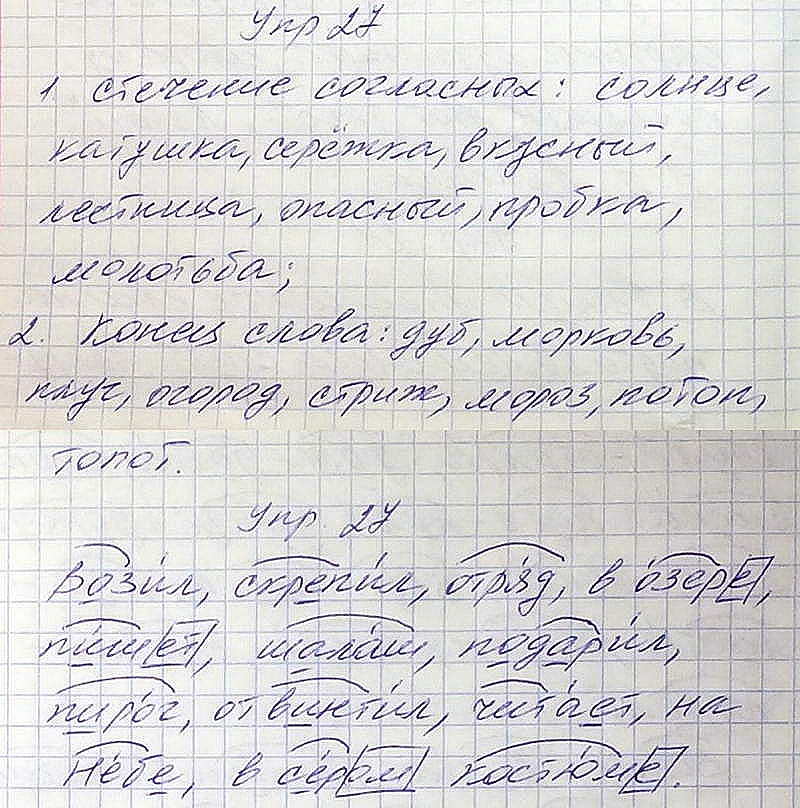 Упр 27
1. стечение согласных: солнце,
катушка, серёжка, вкусный,
лестница, опасный, пробка,
молотьба;
2. конец слова: дуб, морковь,
плуг, огород, стриж, мороз, потоп,
топот.
Упр. 27
Возил, скрепил, отряд, в озере,
пишет, шалаш, подарил,
пирог, отвинтил, читает, на
небе, в сером костюме.